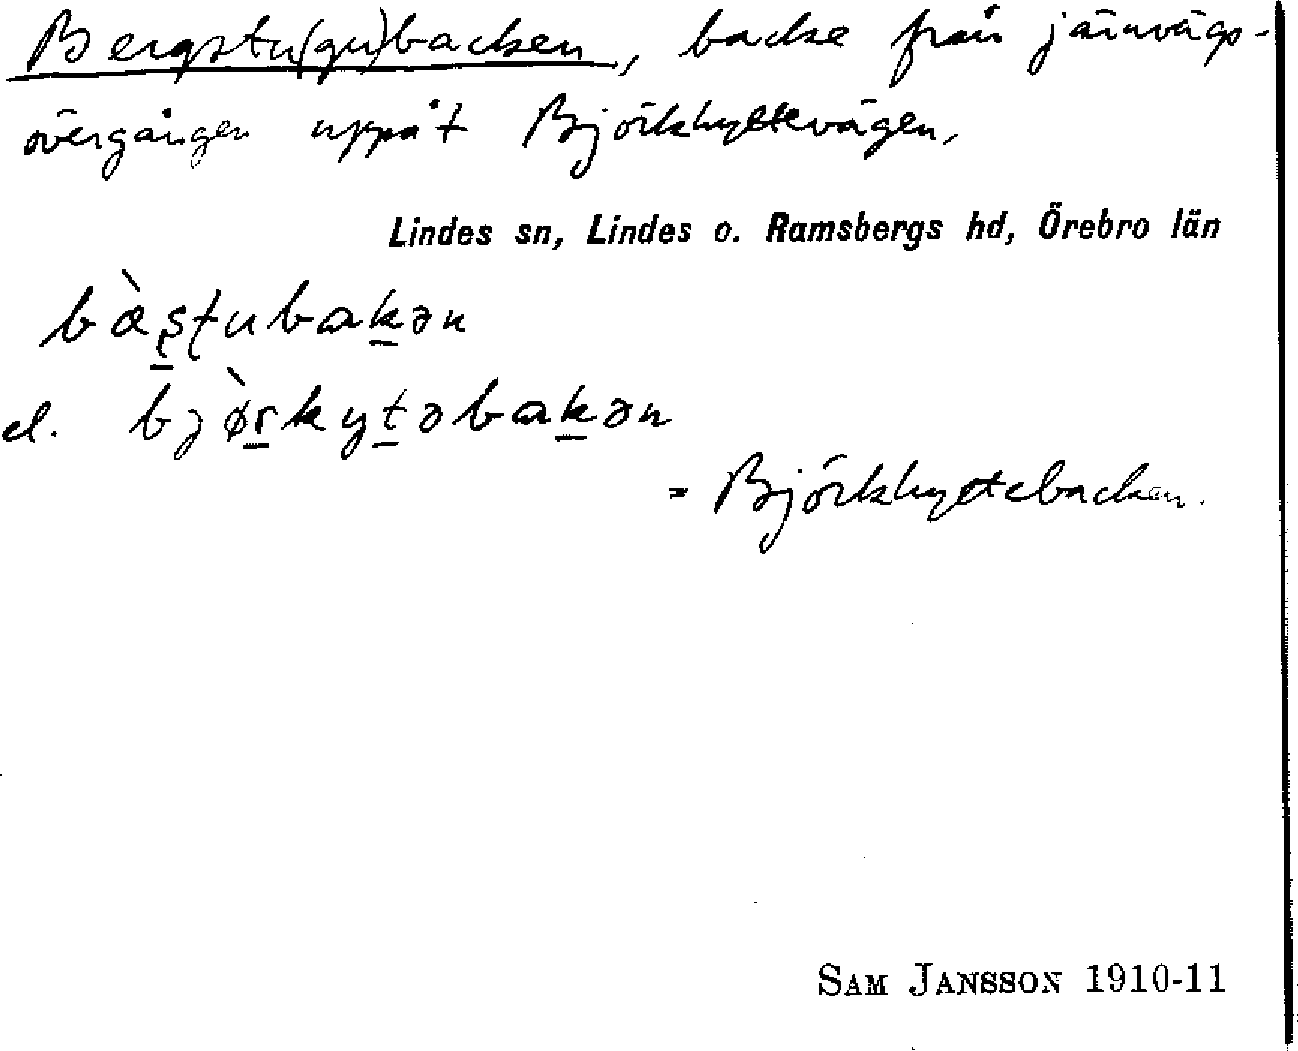 Bergstu(gu)backen, backe från järnvägs-
övergången uppåt Björkhyttevägen.
Lindes sn, Lindes o. Ramsbergs hd, Örebro län
bæ̀ṣṭubak̲ən
el. bjø̀r̲kyt̲əbak̲ən
= Björkhyttebacken.
SAM JANSSON 1910-11